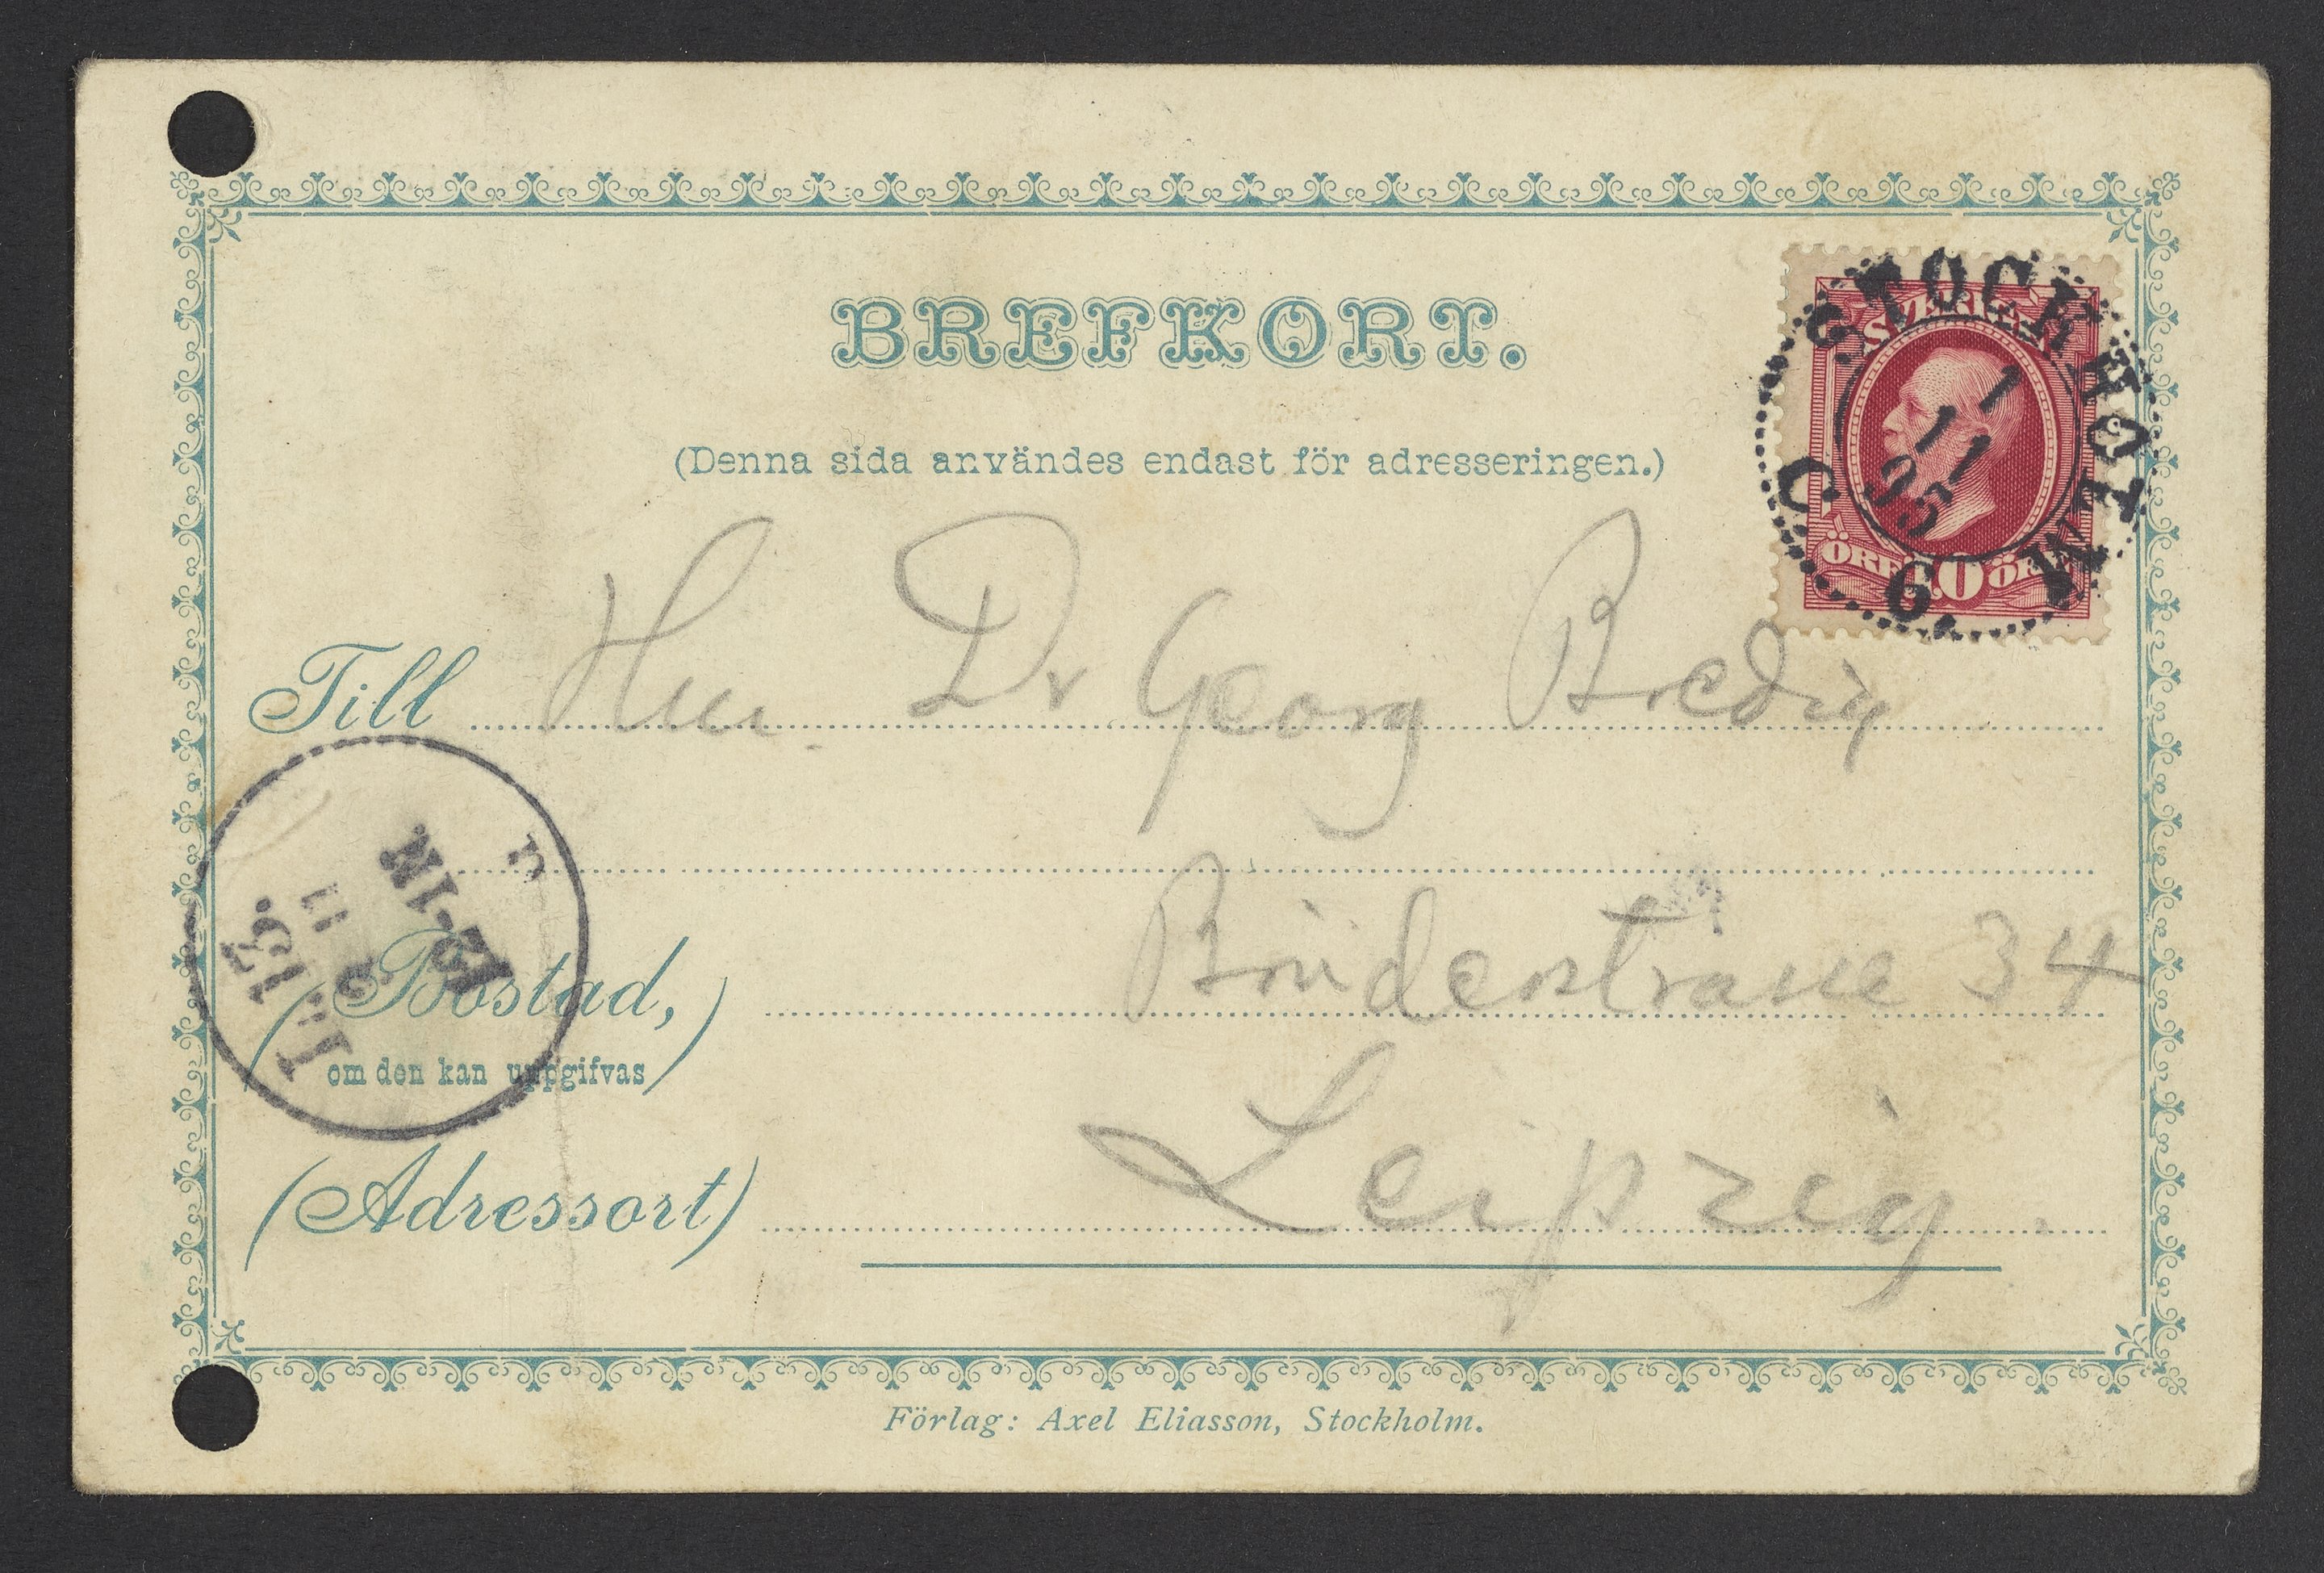 BREFKORT.
(Denna sida användes endast för adresseringen.)
SVERIGE
ÖRE 10 ÖRE
STOCKHOLM
1
11
95
C. 6.
Till Hrn. Dr Georg Bredig
12-1N
11
Bostad, Brüderstrasse 34
om den kan uppgifvas
(Adressort) Leipzig.
Förlag: Axel Eliasson, Stockholm.